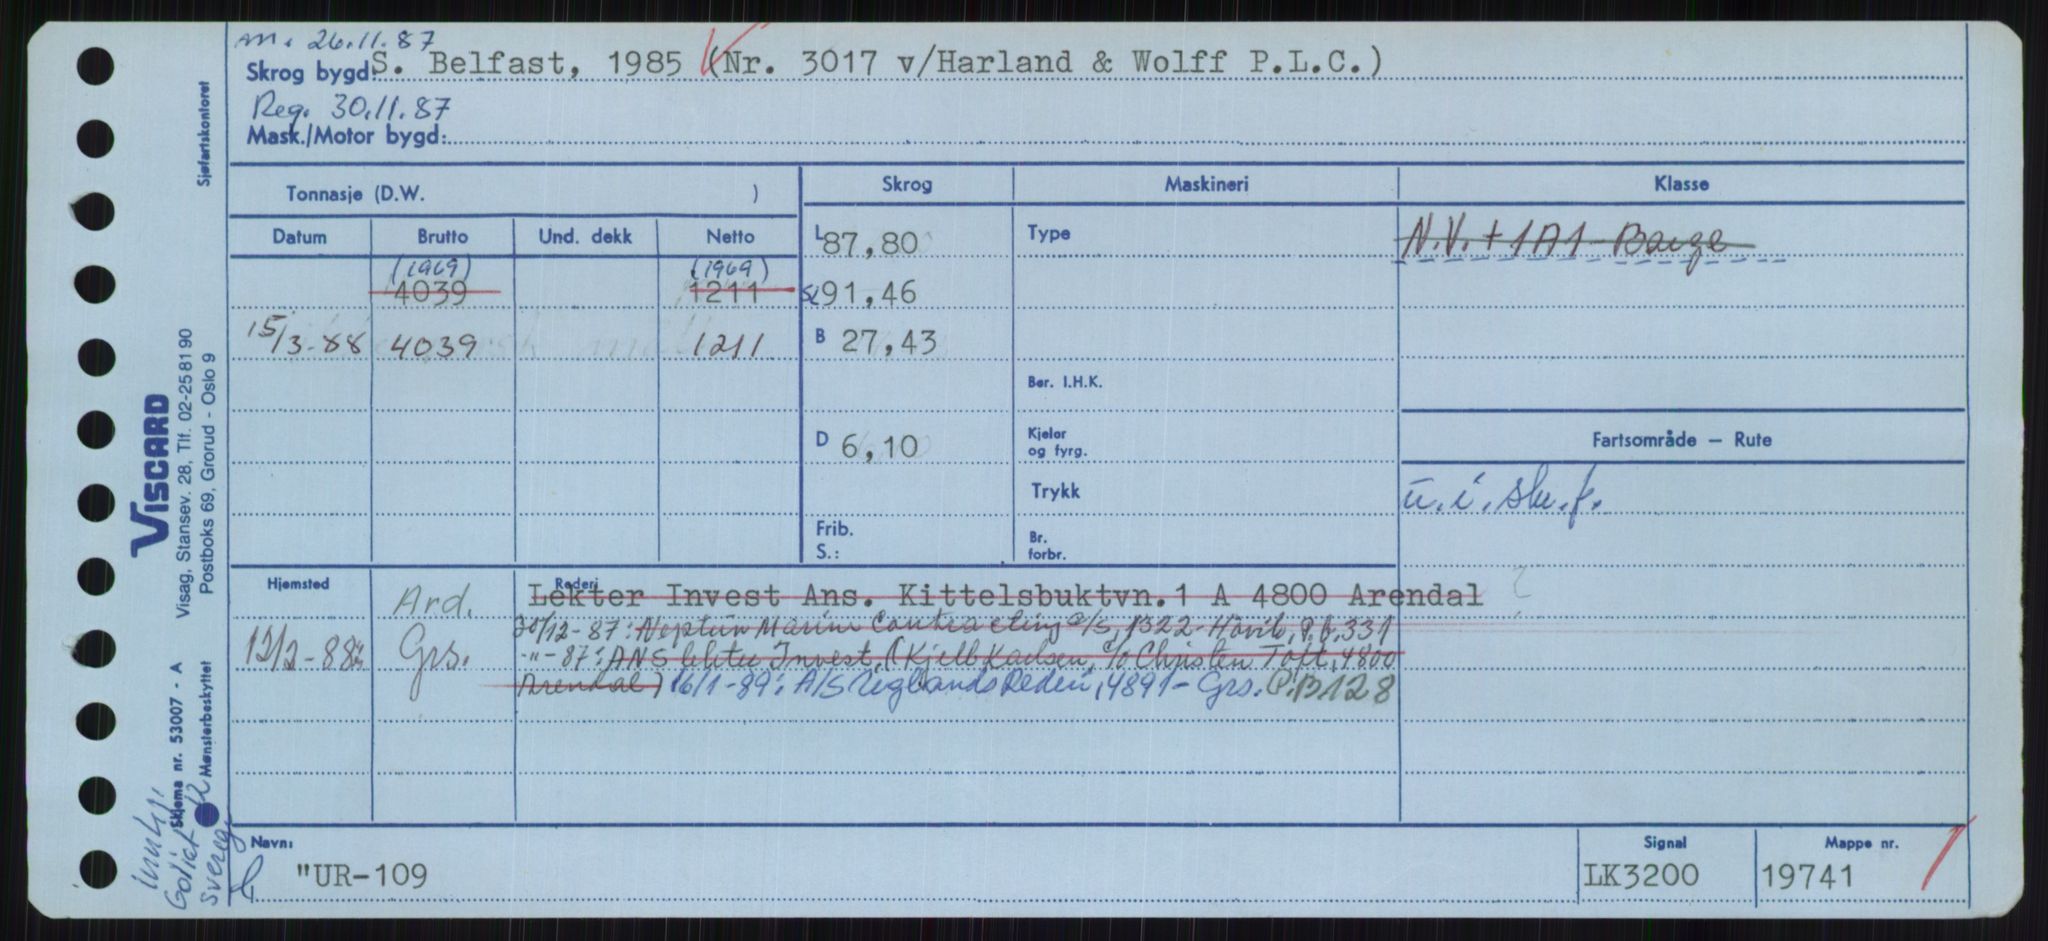 m. 26.11.87
Skrog bygd: S. Belfast, 1985 (Nr. 3017 v/Harland & Wolff P.L.C.)
Reg. 30.11.87
Mask./Motor bygd:
Sjøfartskontoret
Tonnasje (D.W. )
Skrog Maskineri Klasse
Datum Brutto Und. dekk Netto
L 87,80 Type N.V. + 1A1 - Barge
(1969) (1969)
4039 1211 91,46
15/3-88 4039 1211 B 27,43
Ber. I.H.K.
D 6,10 Kjeler og fyrg. Fartsområde – Rute
Trykk u.i.
Frib. S.: Br. forbr.
VISCARD
Visag, Stansev. 28, Tlf. 02-258190
Postboks 69, Grorud - Oslo 9
Skjema nr. 53007 - A
Mønsterbeskyttet
Hjemsted Rederi
Ard. Lekter Invest Ans. Kittelsbuktvn. 1 A 4800 Arendal
30/12-87: Neptun Marin Contracting A/S, 1322-Høvik, P.b. 331
12/2-88 Grs. -"-87: ANS lekter Invest, (Kjell Karlsen, c/o Christen Toft, 4800
Arendal) 16/1-89: A/S Uglands Rederi, 4891 - Grs. P.B 128
Navn: "UR-109
Signal LK3200
Mappe nr. 19741